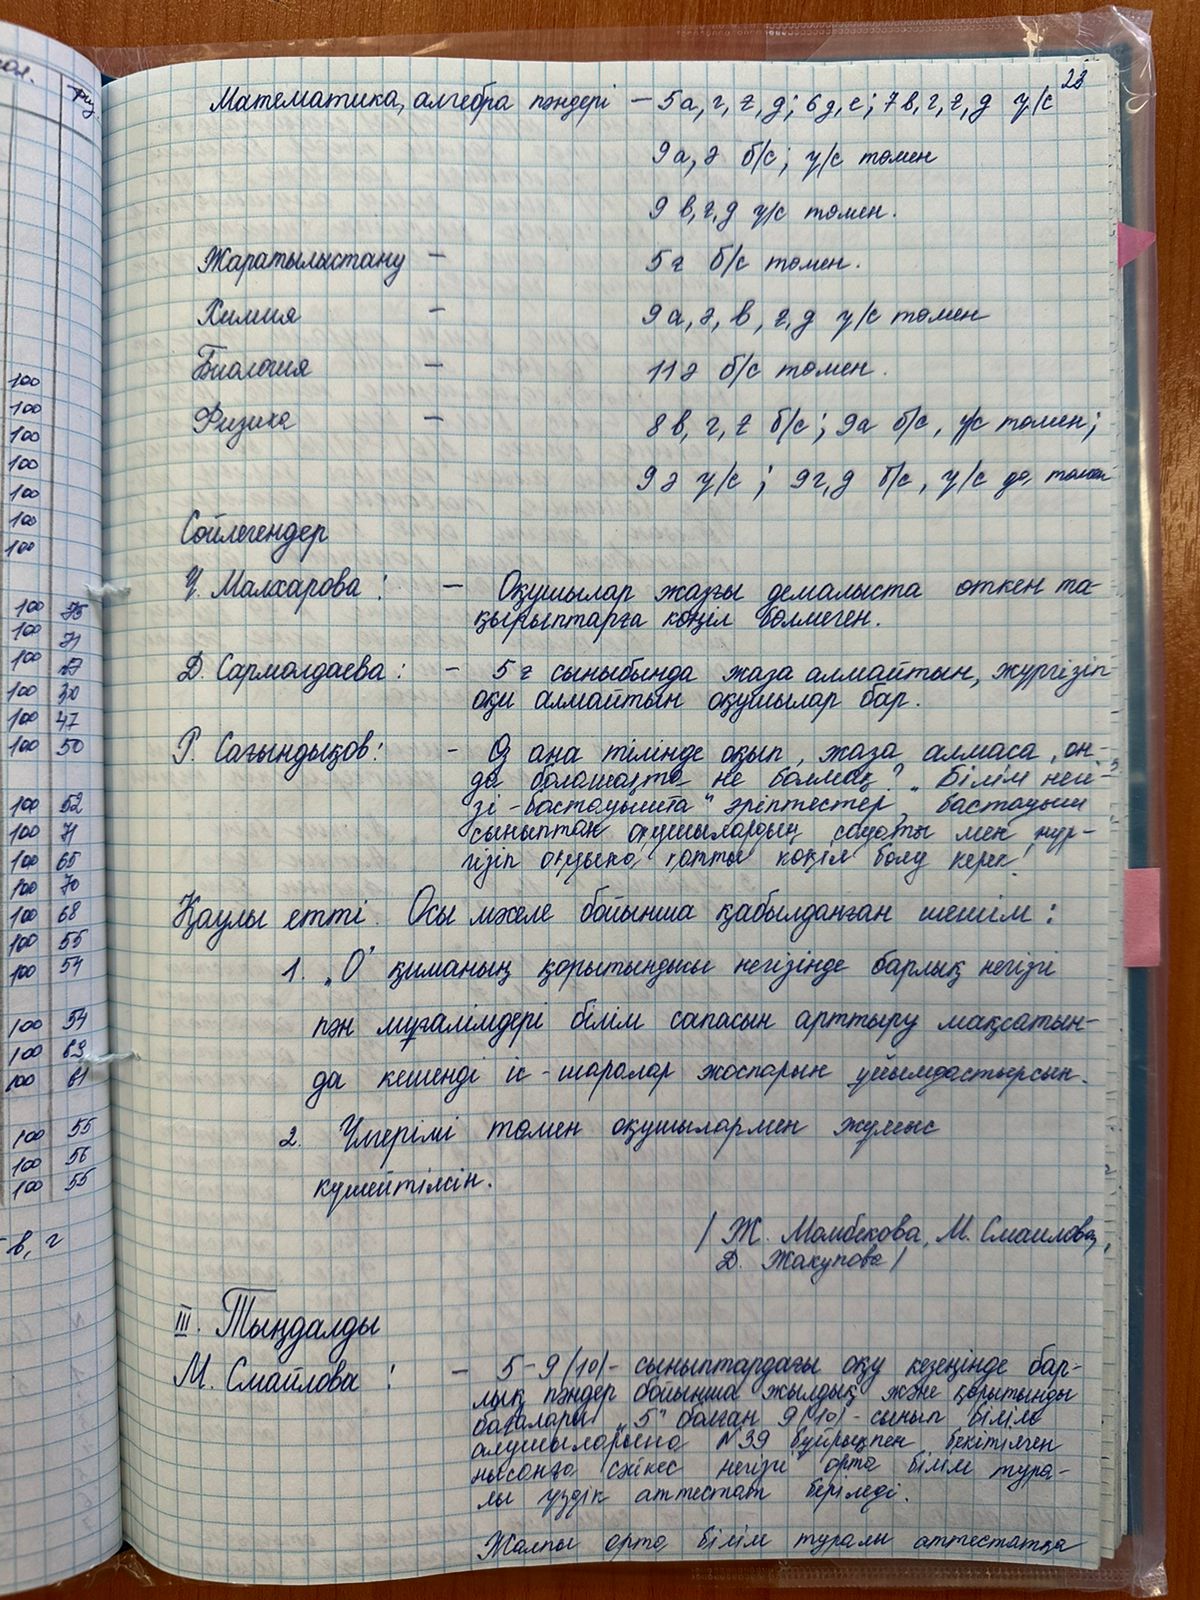 23
Математика, алгебра пәндері – 5а, г, ғ, д; 6д, е; 7в, г, ғ, д ү/с
9а, ә б/с; ү/с төмен
9 в, г, д ү/с төмен.
Жаратылыстану – 5г б/с төмен.
Химия – 9а, ә, в, г, д ү/с төмен
Биология – 11ә б/с төмен.
Физика – 8в, г, ғ б/с; 9а б/с, ү/с төмен;
9ә ү/с; 9г, д б/с, ү/с де төмен
Сөйлегендер
Ү. Малхарова: – Оқушылар жазғы демалыста өткен та-
қырыптарға көңіл бөлмеген.
Д. Сармолдаева: – 5ғ сыныбында жаза алмайтын, жүргізіп
оқи алмайтын оқушылар бар.
Р. Сағындықов: – Өз ана тілінде оқып, жаза алмаса, он-
да болашақта не болмақ? „Білім негі-
зі – бастауышта" әріптестер, бастауыш
сыныптан оқушылардың сауаты мен жүр-
гізіп оқуына қатты көңіл бөлу керек!
Қаулы етті. Осы мәселе бойынша қабылданған шешім:
1. „О" қиманың қорытындысы негізінде барлық негізгі
пән мұғалімдері білім сапасын арттыру мақсатын-
да кешенді іс-шаралар жоспарын ұйымдастырсын.
2. Үлгерімі төмен оқушылармен жұмыс
күшейтілсін.
/ Ж. Момбекова, М. Смайлова,
Д. Жакупова /
III. Тыңдалды
М. Смайлова: – 5-9 (10)-сыныптардағы оқу кезеңінде бар-
лық пәндер бойынша жылдық және қорытынды
бағалары „5" болған 9(10)-сынып білім
алушыларына №39 бұйрықпен бекітілген
нысанға сәйкес негізгі орта білім тура-
лы үздік аттестат беріледі.
Жалпы орта білім туралы аттестатқа
100
100
100
100
100
100
100
100 75
100 71
100
100 30
100 47
100 50
100 52
100 71
100 65
100 70
100 68
100 55
100 54
100 54
100 69
100 61
100 55
100 56
100 55
в, г